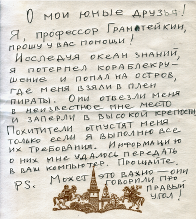 О мои юные друзья!
Я, профессор Гранатейкин,
прошу у вас помощи!
Исследуя океан знаний,
я потерпел кораблекру-
шение и попал на остров,
где меня взяли в плен
пираты. Они отвезли меня
в неизвестное мне место
и заперли в высокой крепости
Похитители отпустят меня
только если я выполню все
их требования. Информацию
о них мне удалось передать
в ваш компьютер. Прощайте.
PS: Может это важно - они
говорили про
правый
угол!